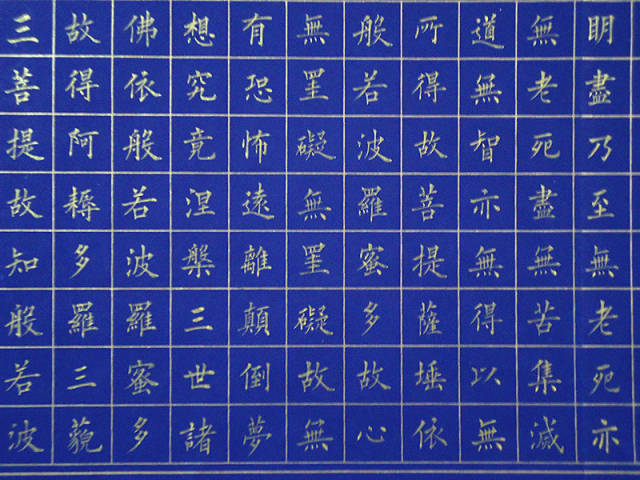 明盡乃至無老死亦
無老死盡無苦集滅
道無智亦無得以無
所得故菩提薩埵依
般若波羅蜜多故心
無罣礙無罣礙故無
有恐怖遠離顛倒夢
想究竟涅槃三世諸
佛依般若波羅蜜多
故得阿耨多羅三藐
三菩提故知般若波